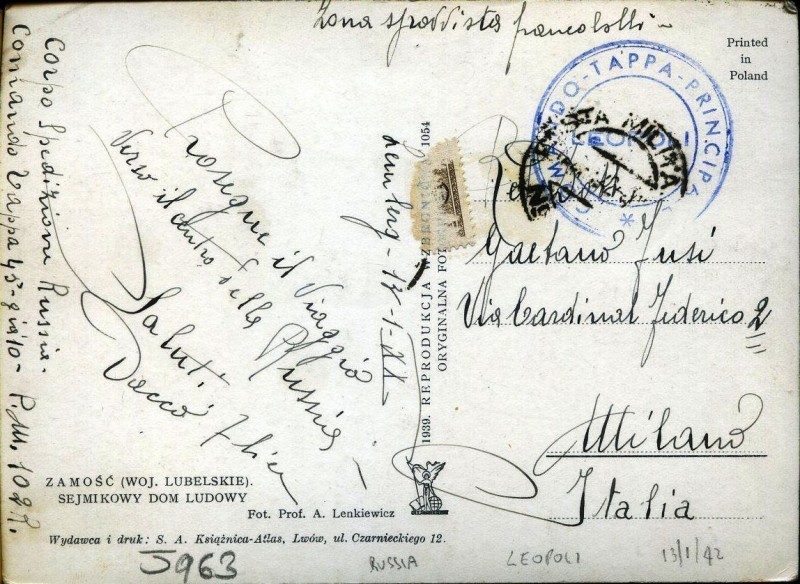 Zona sprovvista francobolli
Printed
in
Poland
COMANDO-TAPPA-PRINCIPALE
LEOPOLI
POSTA MILITARE
Corpo Spedizione Russia.
Comando Tappa
P.M. 102
Lemberg - 13-1-XX
Prosegue il Viaggio
Verso il centro della Russia
Saluti
Gaetano Fusi
Via Cardinal Federico 2
Milano
Italia
1939. REPRODUKCJA WZBRONIONA 1054
ORYGINALNA FOTOGR
ZAMOŚĆ (WOJ. LUBELSKIE).
SEJMIKOWY DOM LUDOWY
Fot. Prof. A. Lenkiewicz
Wydawca i druk: S. A. Książnica-Atlas, Lwów, ul. Czarnieckiego 12.
5963
RUSSIA
LEOPOLI
13/1/42